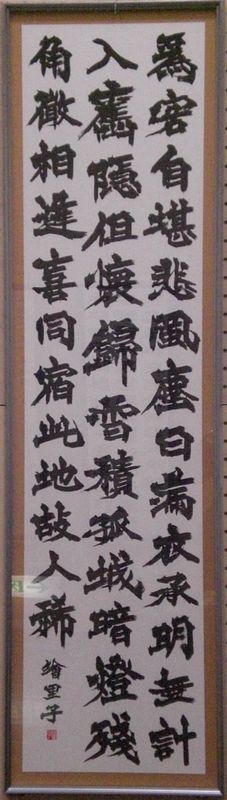 爲客自堪悲風塵日滿衣承明無計
入舊隱但懷歸雪積孤城暗燈殘
角微相逢喜同宿此地故人稀
繪里子